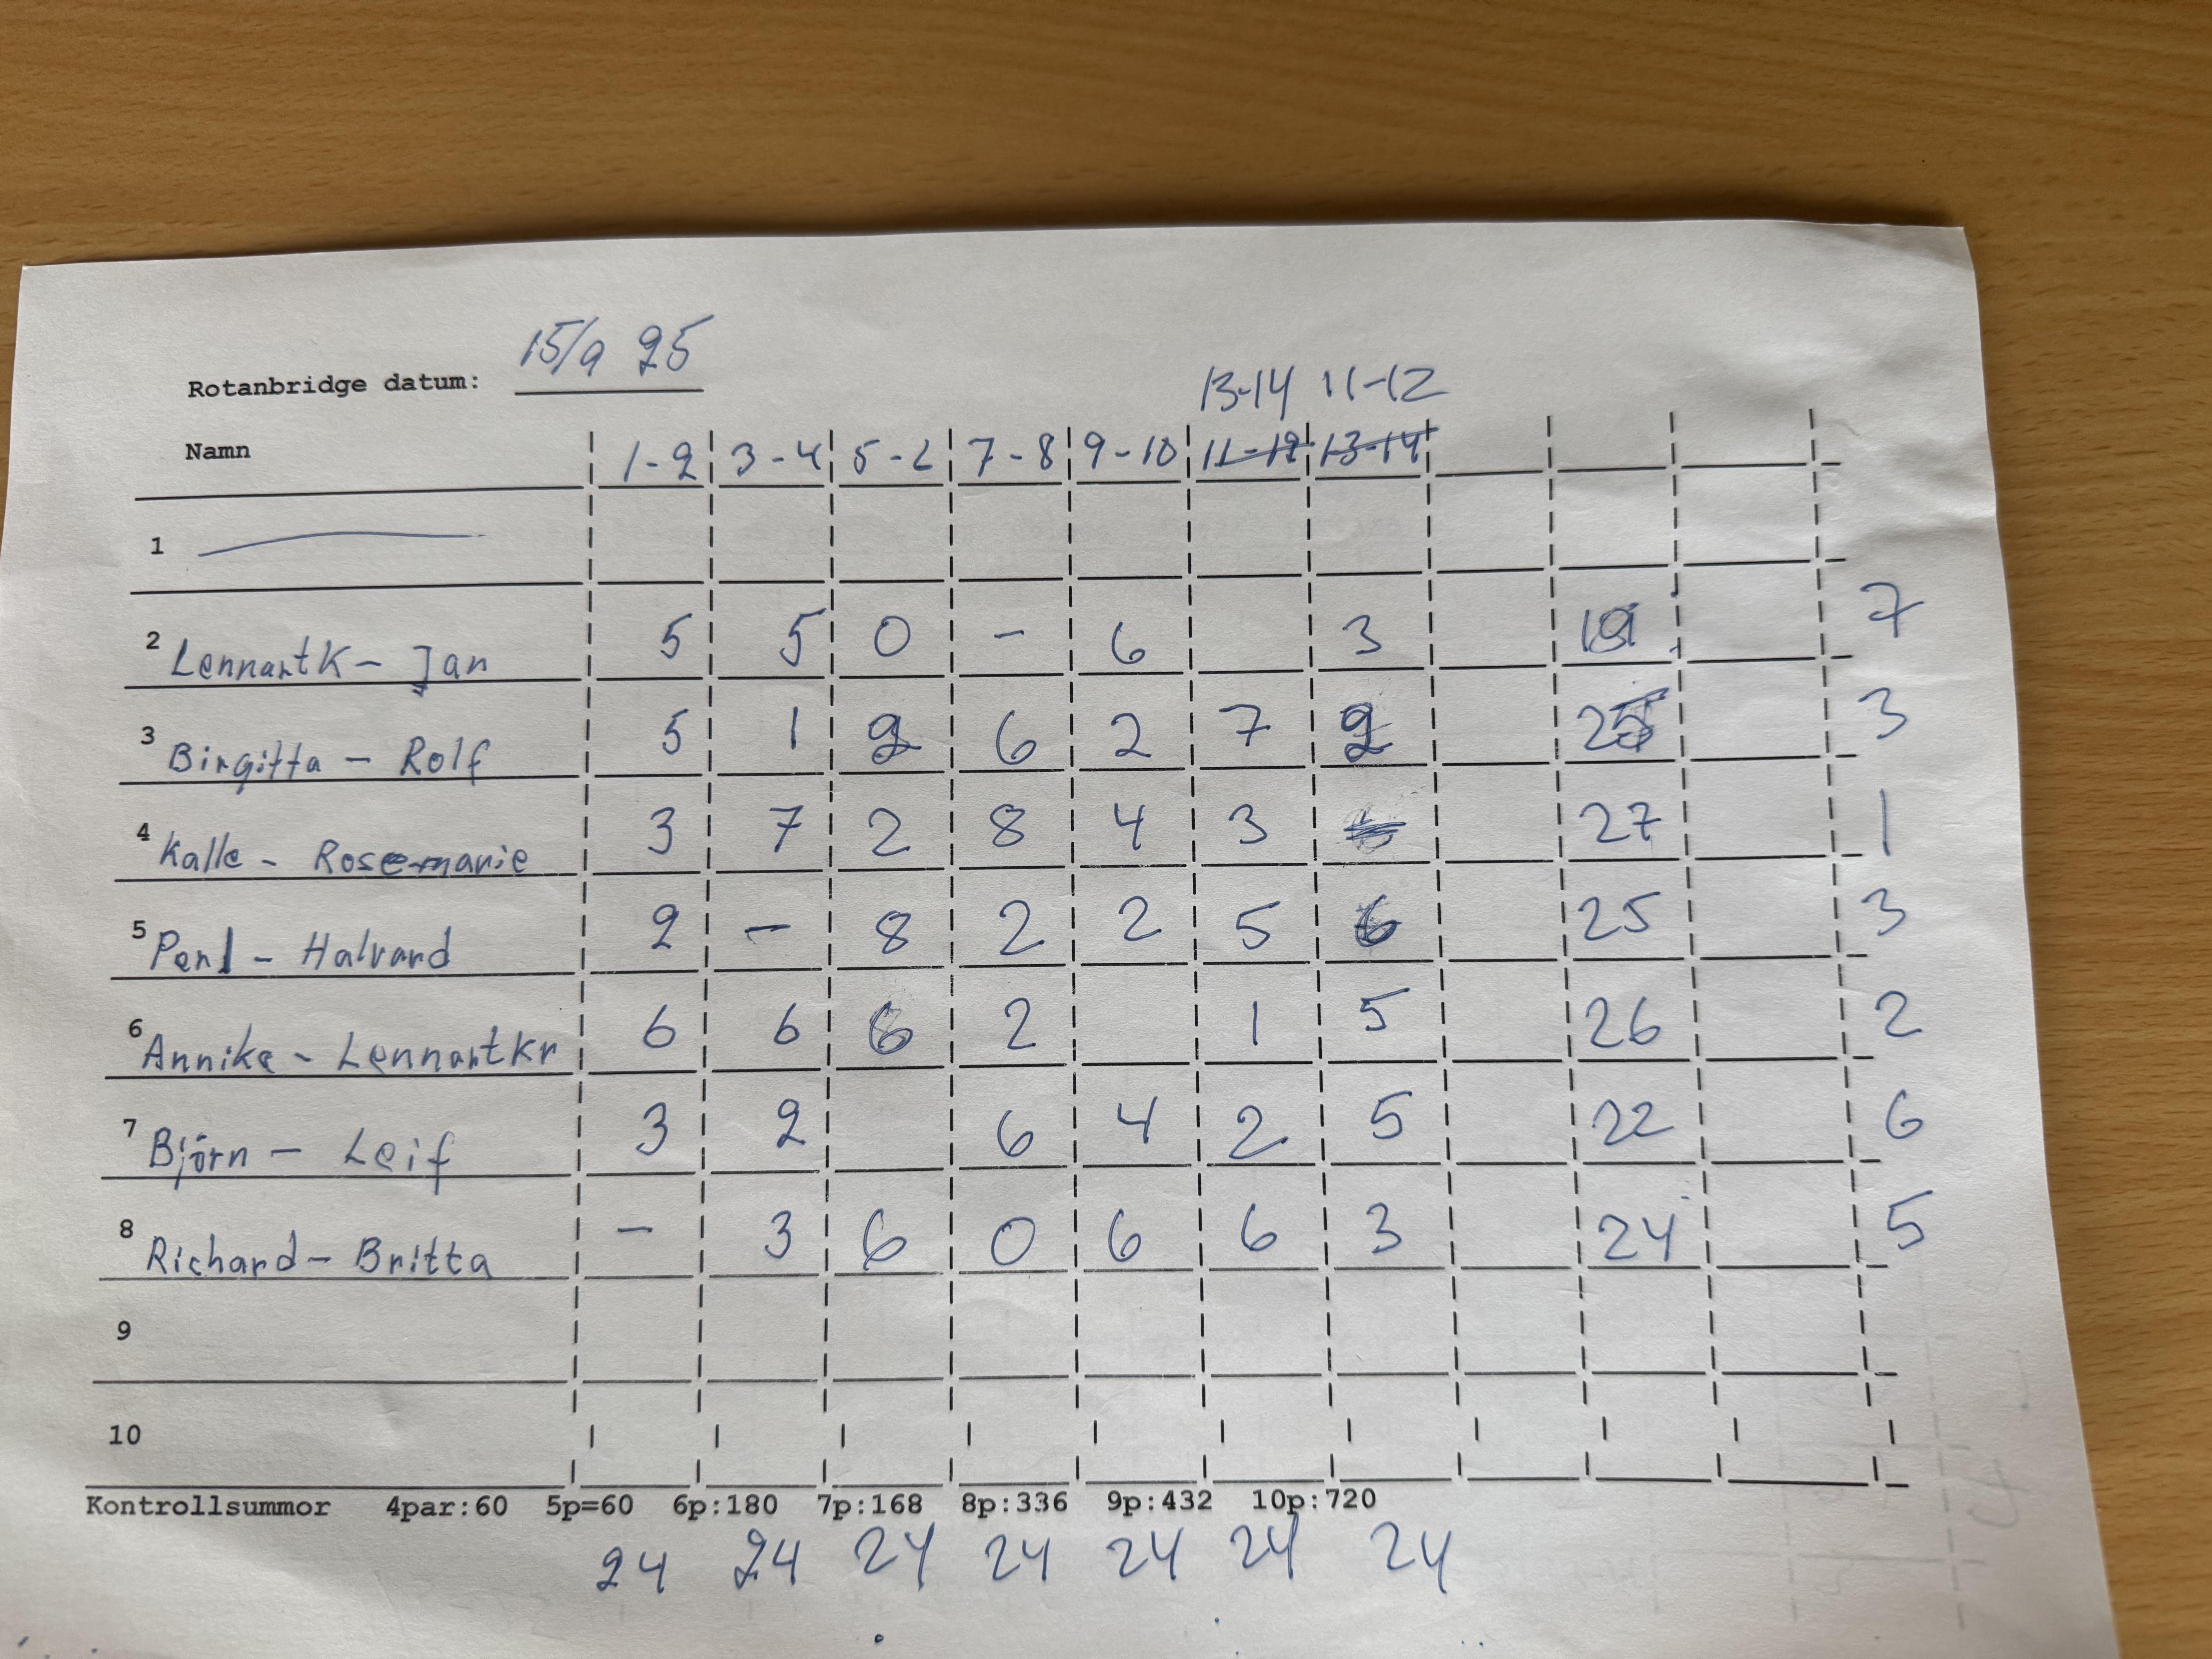 Rotanbridge datum: 15/9 25
13-14 11-12
Namn 1-2 3-4 5-6 7-8 9-10 11-12 13-14
1
2 LennartK - Jan 5 5 0 - 6 3 19 7
3 Birgitta - Rolf 5 1 2 6 2 7 2 25 3
4 Kalle - Rosemarie 3 7 2 8 4 3 27 1
5 PerI - Halvard 2 - 8 2 2 5 6 25 3
6 Annika - LennartKr 6 6 6 2 1 5 26 2
7 Björn - Leif 3 2 6 4 2 5 22 6
8 Richard - Britta - 3 6 0 6 6 3 24 5
9
10
Kontrollsummor 4par:60 5p=60 6p:180 7p:168 8p:336 9p:432 10p:720
24 24 24 24 24 24 24